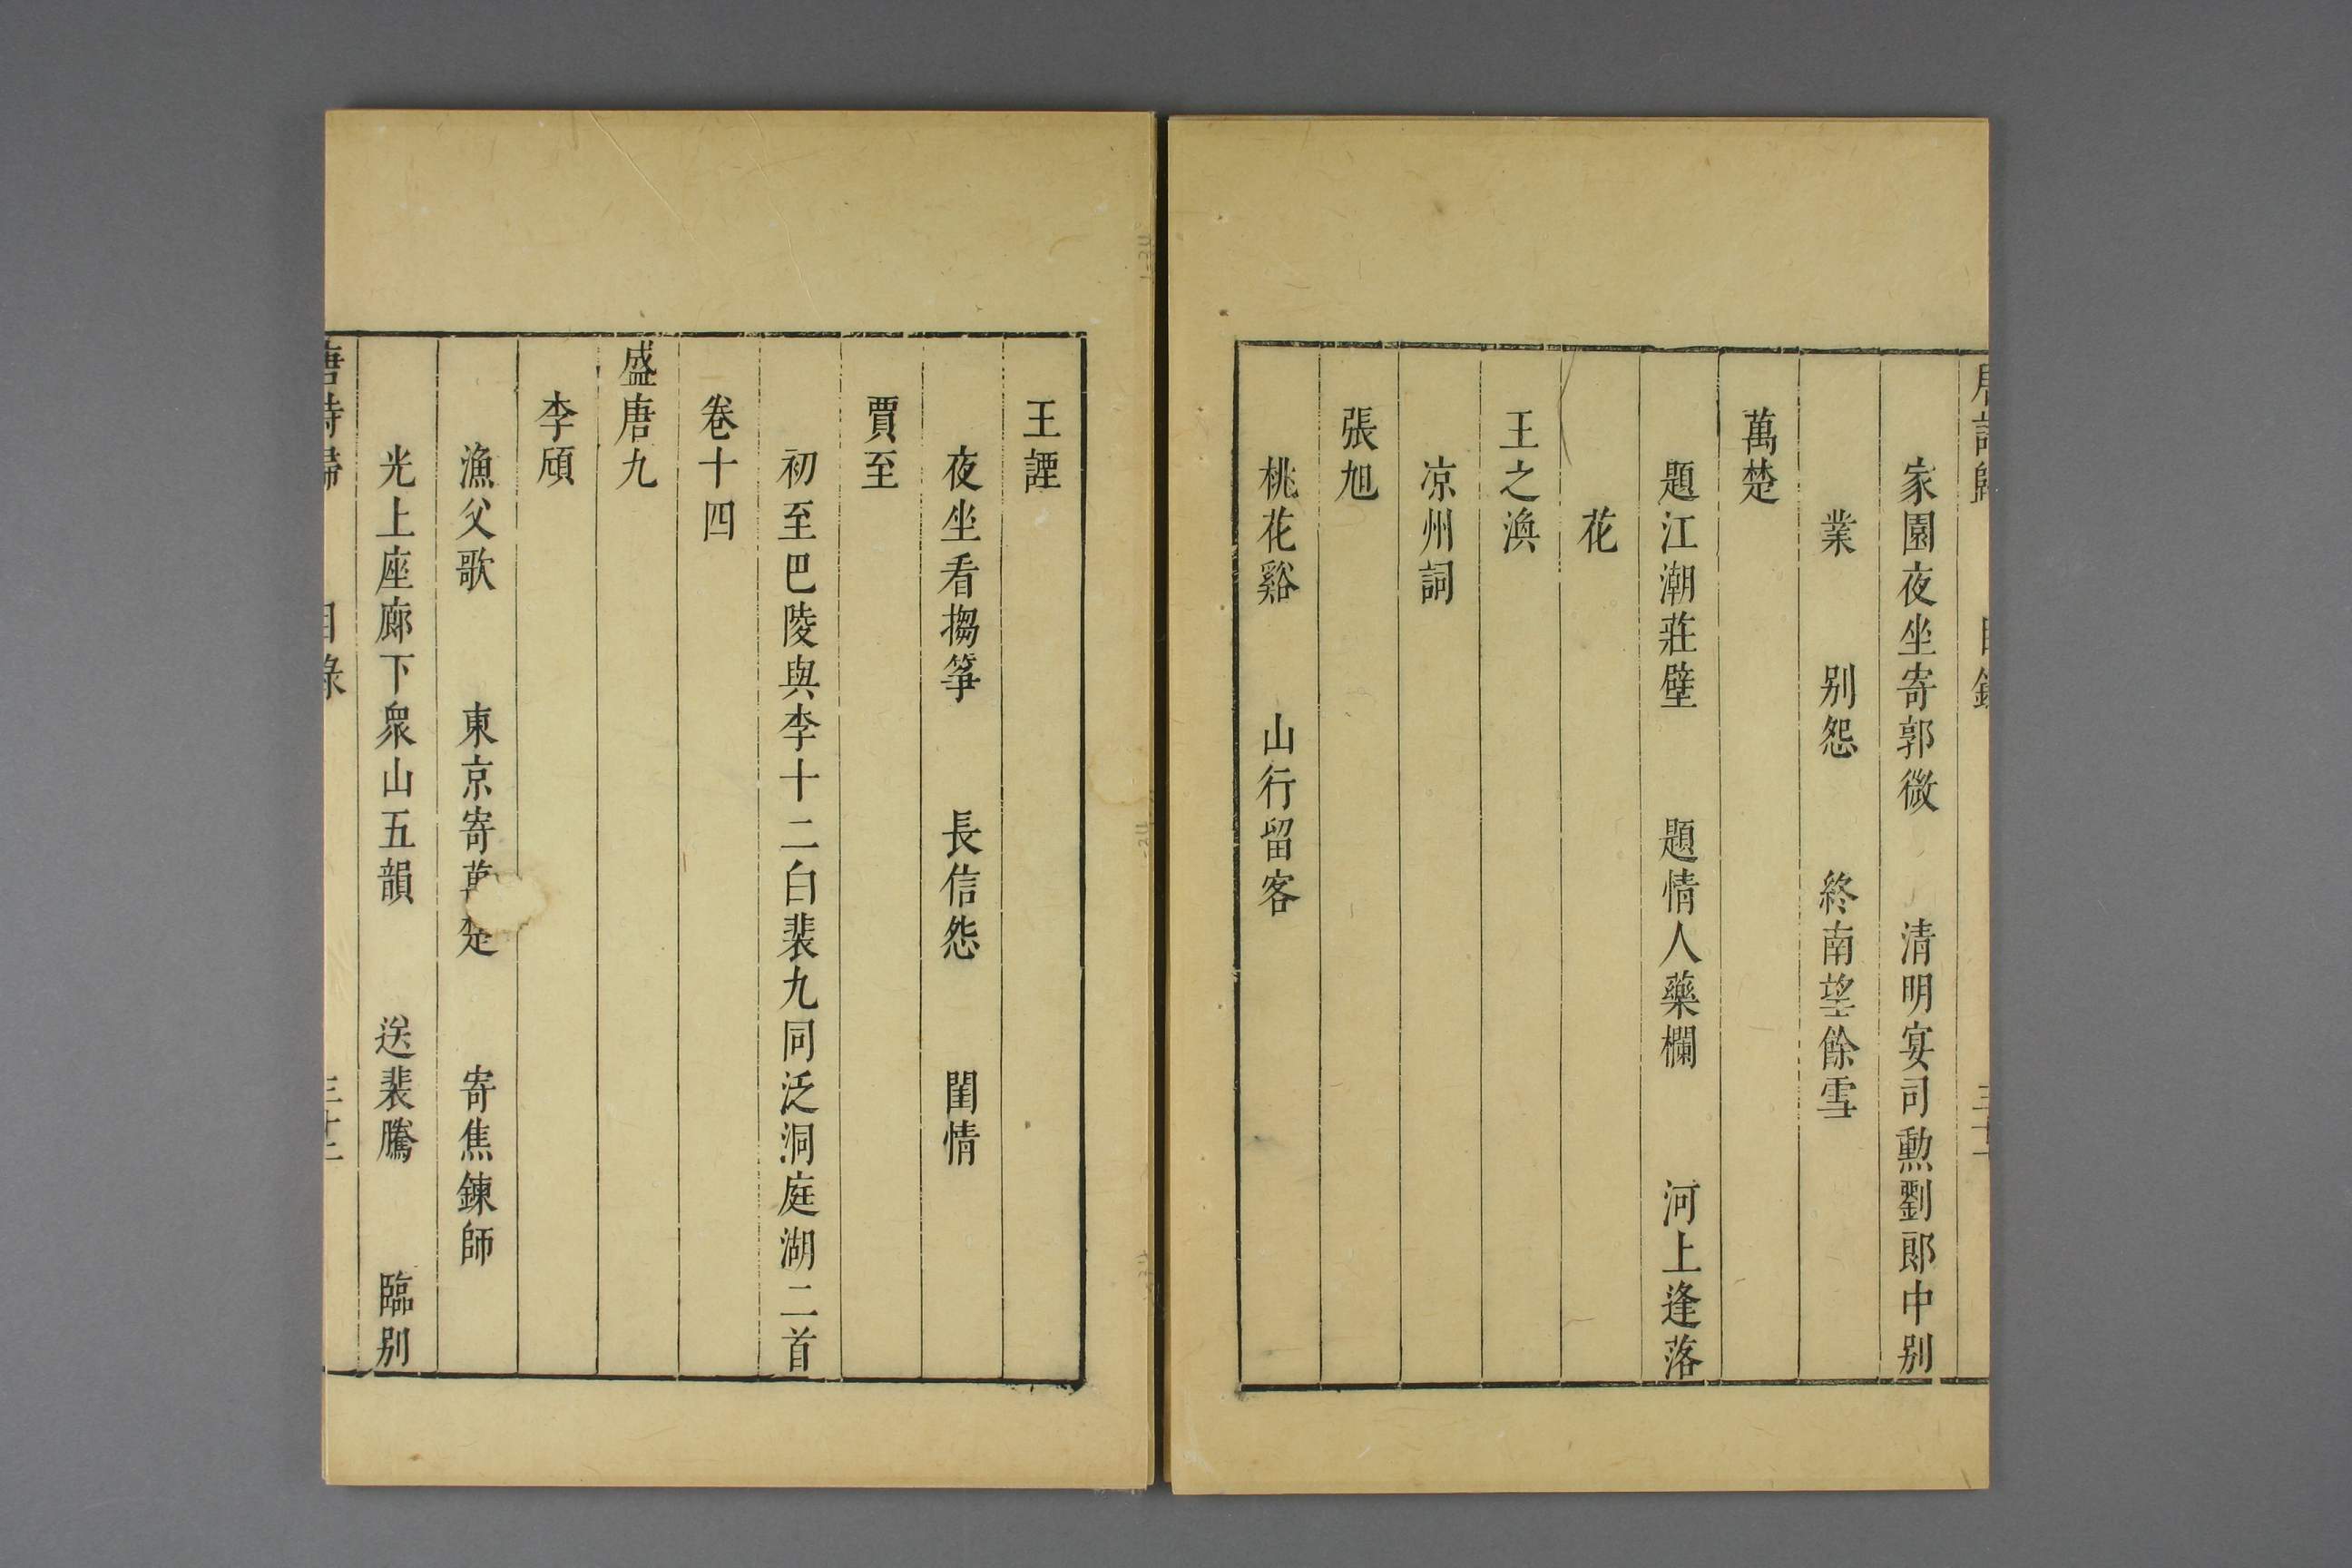 唐詩歸 目錄 三十一
家園夜坐寄郭微 清明宴司勲劉郎中别
業 别怨 終南望餘雪
萬楚
題江潮莊壁 題情人藥欄 河上逢落
花
王之渙
凉州詞
張旭
桃花谿 山行留客
王諲
夜坐看搊筝 長信怨 閨情
賈至
初至巴陵與李十二白裴九同泛洞庭湖二首
卷十四
盛唐九
李頎
漁父歌 東京寄萬楚 寄焦鍊師
光上座廊下衆山五韻 送裴騰 臨别
唐詩歸 目錄 三十二